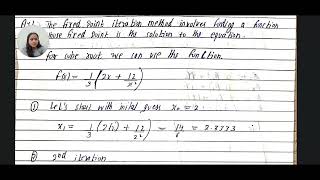 Ans: The fixed point iteration method involves finding a function
whose fixed point is the solution to the equation.
for cube root we can use this function
f(x) = 1/3 (2x + 12/x²)
① Let's start with inital guess x₀ = 2
x₁ = 1/3 (2(2) + 12/2²) = 14/6 = 2.3333
② 2nd iteration